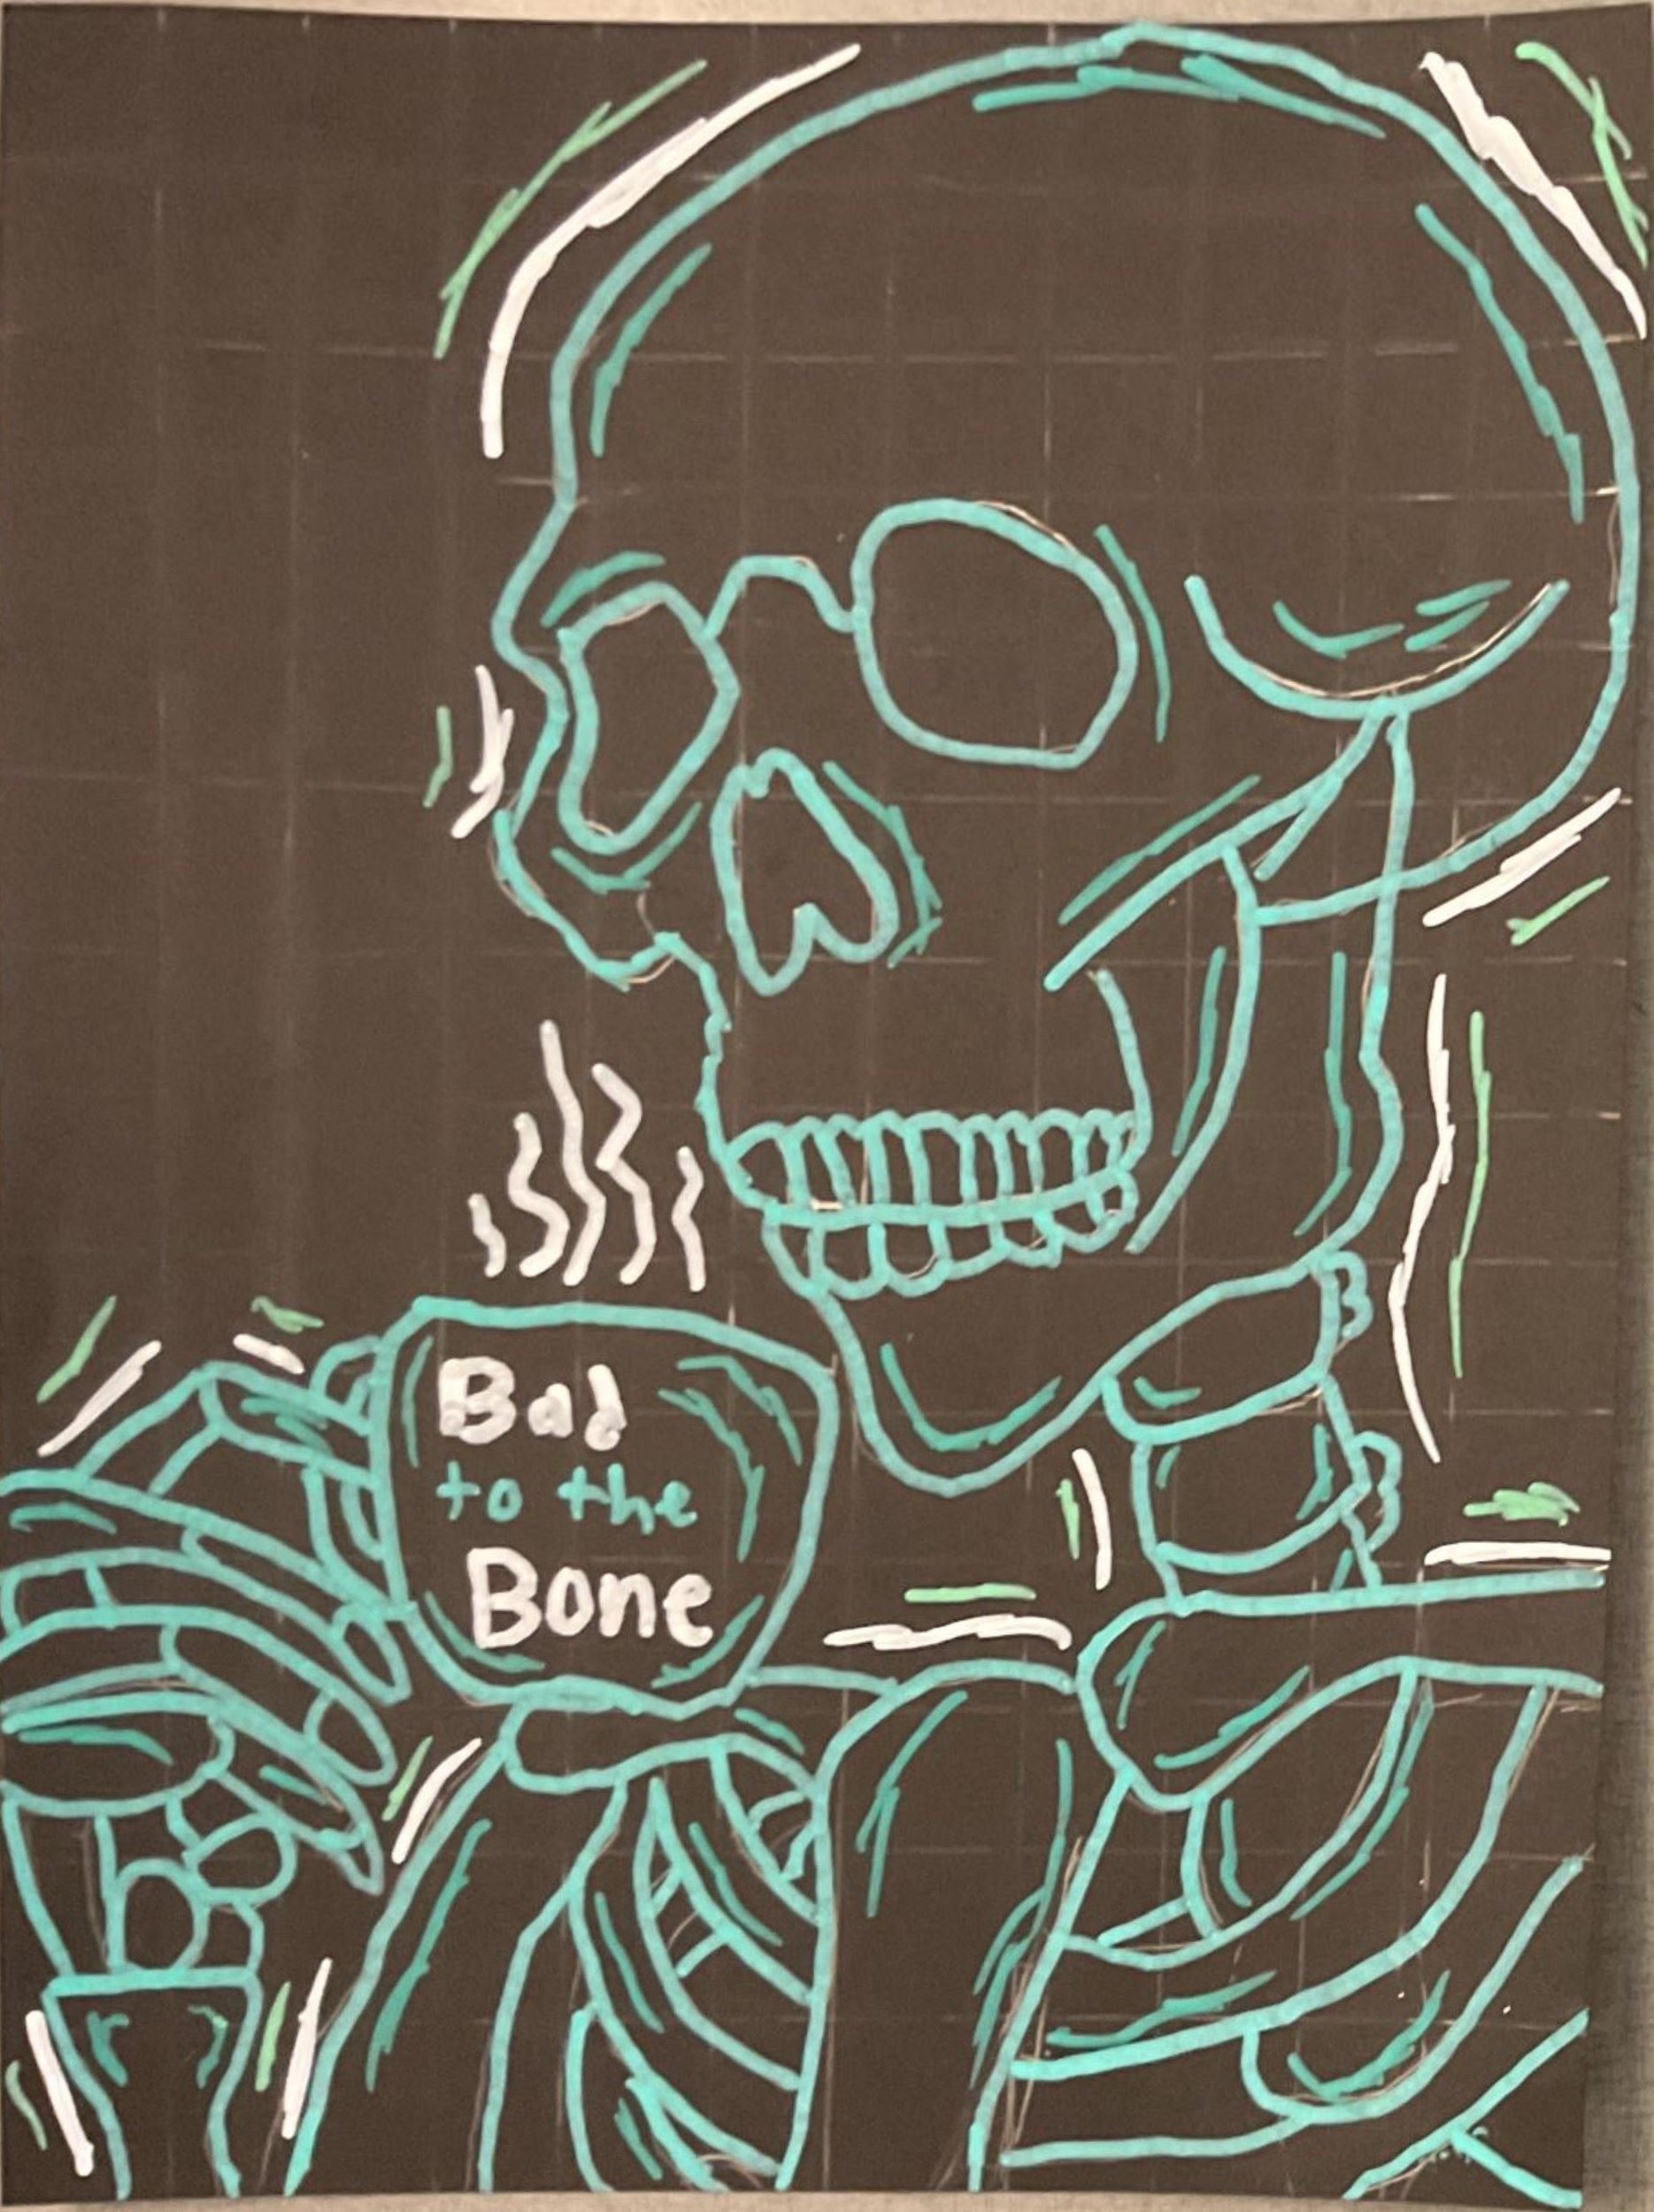 Bad
to the
Bone